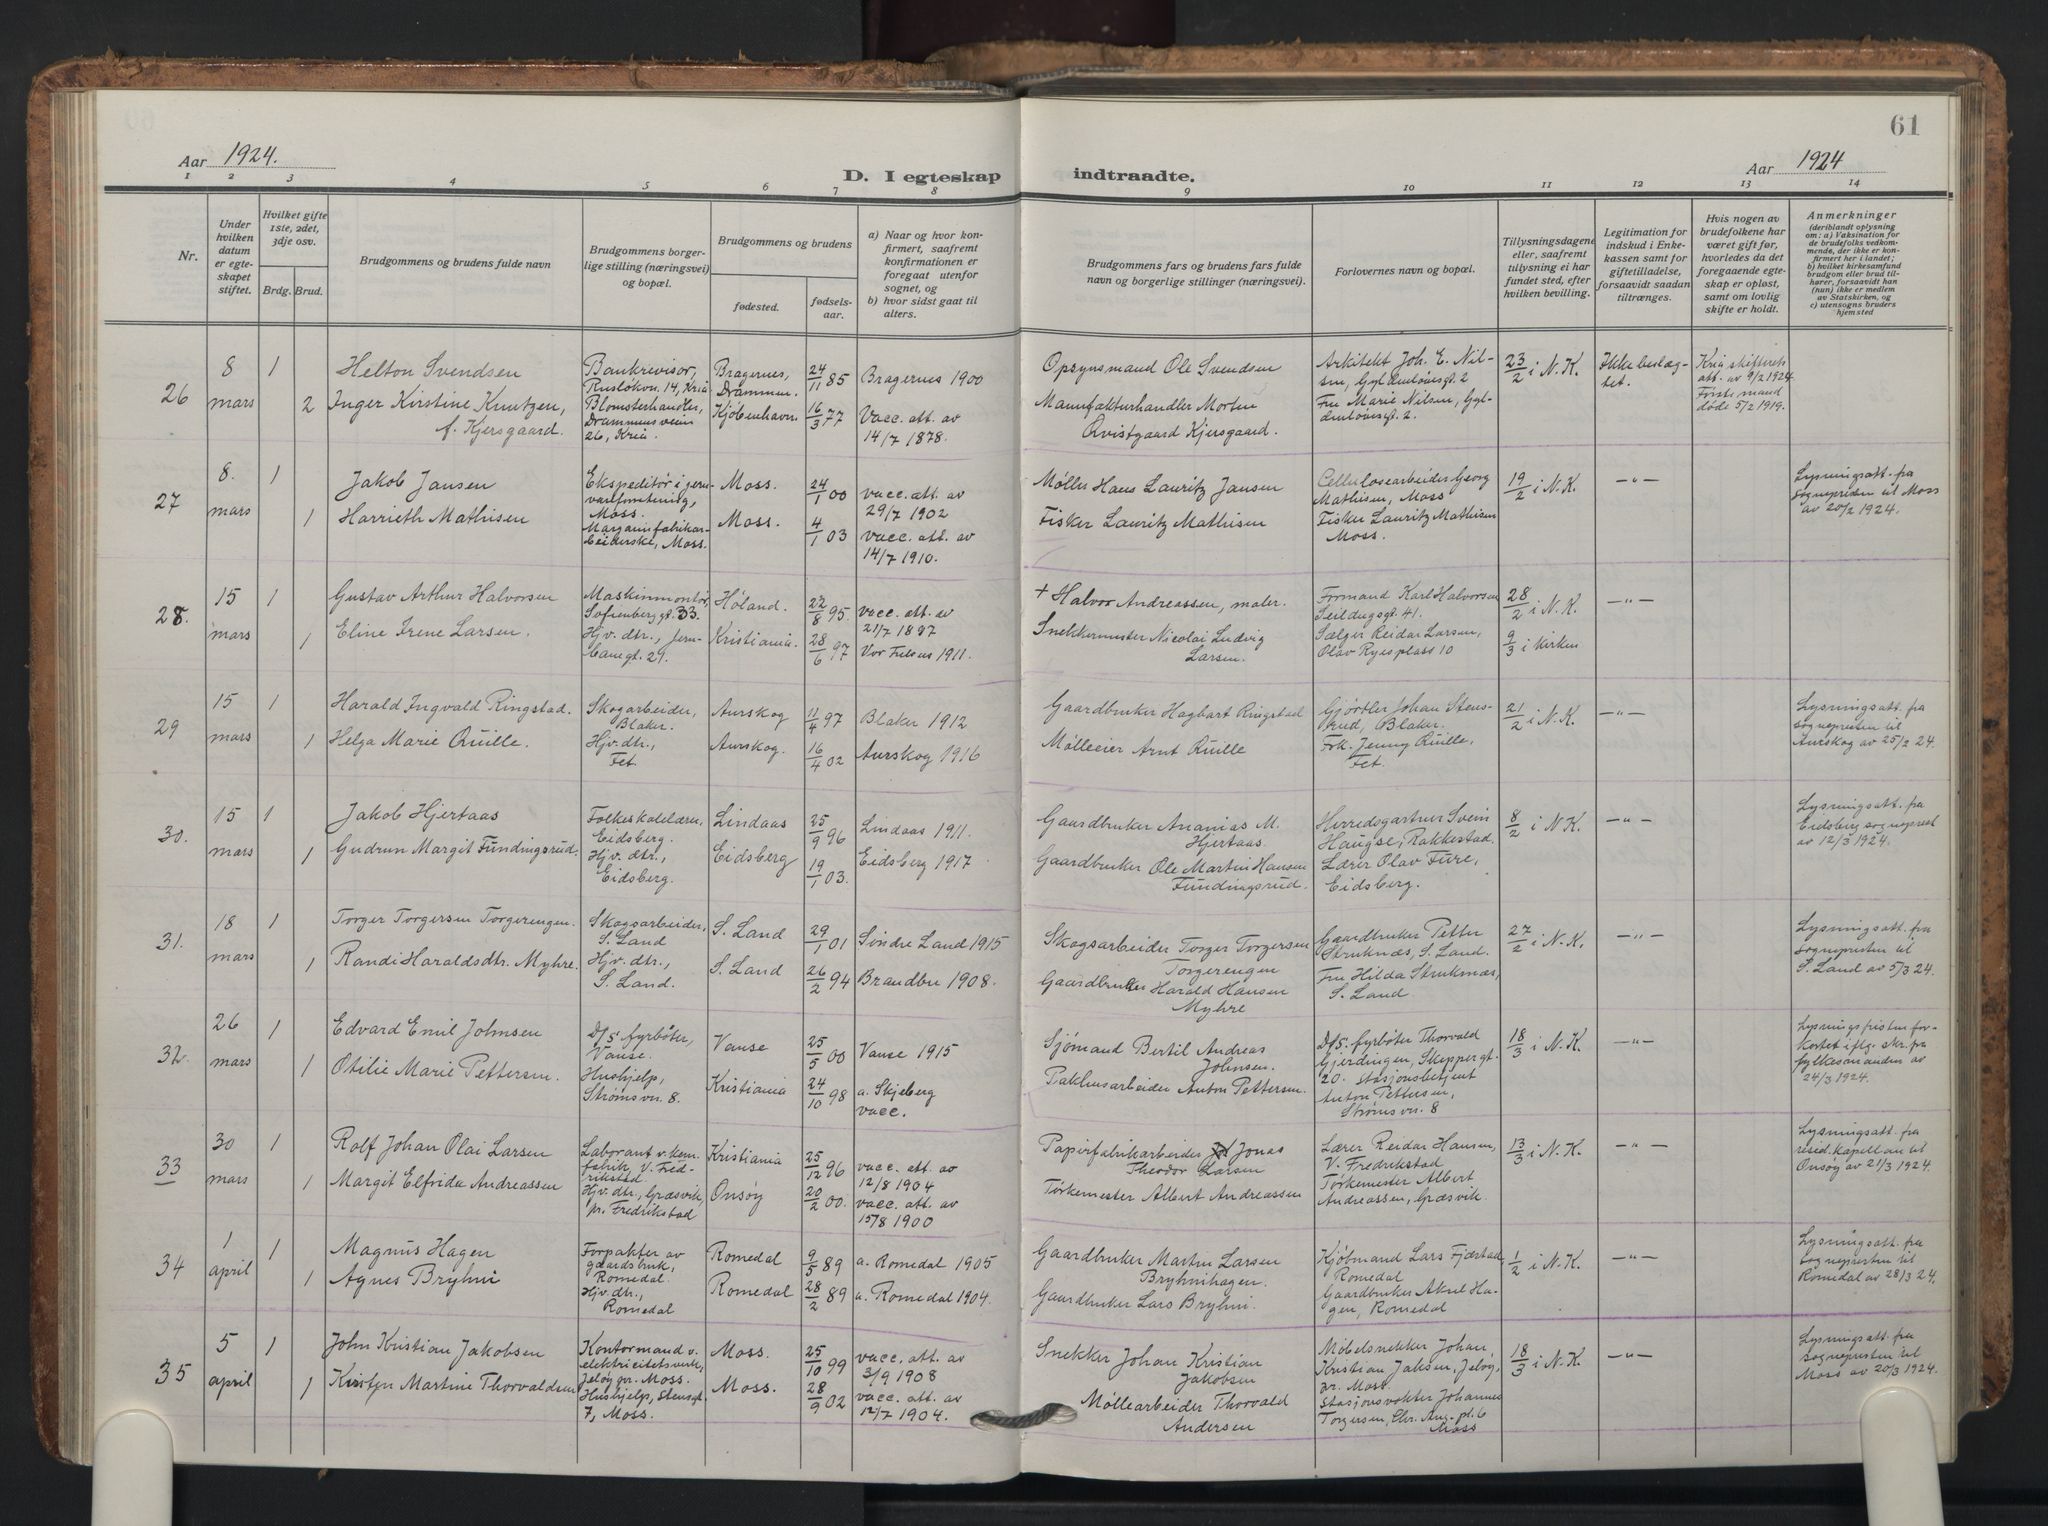 61
Aar 1924.
Aar 1924
D. I egteskap indtraadte.
1 2 3 4 5 6 7 8 9 10 11 12 13 14
Nr.
Under hvilken datum er egteskapet stiftet.
Hvilket gifte 1ste, 2det, 3dje osv.
Brdg. Brud.
Brudgommens og brudens fulde navn
Brudgommens borgerlige stilling (næringsvei) og bopæl.
Brudgommens og brudens
fødested.
fødselsaar.
a) Naar og hvor konfirmert, saafremt konfirmationen er foregaat utenfor sognet, og
b) hvor sidst gaat til alters.
Brudgommens fars og brudens fars fulde navn og borgerlige stillinger (næringsvei).
Forlovernes navn og bopæl.
Tillysningsdagene eller, saafremt tillysning ei har fundet sted, efter hvilken bevilling.
Legitimation for indskud i Enkekassen samt for giftetilladelse, forsaavidt saadan tiltrænges.
Hvis nogen av brudefolkene har været gift før, hvorledes da det foregaaende egteskap er opløst, samt om lovlig skifte er holdt.
Anmerkninger (deriblandt oplysning om: a) Vaksination for de brudefolks vedkommende, der ikke er konfirmert her i landet; b) hvilket kirkesamfund brudgom eller brud tilhører, forsaavidt han (hun) ikke er medlem av Statskirken, og c) utensogns bruders hjemsted
26 8 mars 1 2
Helton Svendsen
Inger Kirstine Knutzen, f. Kjersgaard.
Bankrevisor, Ruseløkvn. 14, Kria
Blomsterhandler, Drammensveien 26, Kria.
Bragernes, Drammen. 24/11 85 Bragernes 1900
Kjøbenhavn. 16/3 77 Vacc. att. av 14/7 1878.
Opsynsmand Ole Svendsen
Manufakturhandler Morten Qvistgaard Kjersgaard.
Arkitekt Joh. E. Nilsen, Gyldenløvesgt. 2
Fru Marie Nilsen, Gyldenløvesgt 2.
23/2 i N.K.
Ikke beslægtet.
Kria skifteret att. av 9/2 1924. Første mand døde 5/2 1919.
27 8. mars 1 1
Jakob Jansen
Harrieth Mathisen
Ekspeditør i jernvareforretning, Moss.
Margarinfabrikarbeiderske, Moss.
Moss. 24/1 00 vacc. att. av 29/7 1902
Moss. 4/1 03 vacc. att. av 14/7 1910.
Møller Hans Lauritz Jansen
Fisker Lauritz Mathisen
Cellulosearbeider Georg Mathisen, Moss
Fisker Lauritz Mathisen Moss.
19/2 i N.K.
—"—
Lysningsatt. fra sognepresten til Moss av 20/2 1924.
28. 15 mars 1 1
Gustav Arthur Halvorsen
Eline Irene Larsen.
Maskinmontør, Sofienberggt. 33.
Hjv. dtr., Jernbanegt. 21.
Høland. 22/8 95 vacc. att. av 21/7 1897
Kristiania. 28/6 97 Vor Frelsers 1911.
+ Halvor Andreassen, maler.
Snekkermester Nicolai Ludvig Larsen.
Formand Karl Halvorsen Seildugsgt. 41.
Sælger Reidar Larsen, Olav Ryesplass 10
28/2 i N.K.
9/3 i Kirken
—"—
29 15 mars 1 1
Harald Ingvald Ringstad.
Helga Marie Quille.
Skogarbeider, Blaker.
Hjv. dtr., Fet.
Aurskog 11/4 97 Blaker 1912
Aurskog. 16/4 02 Aurskog 1916
Gaardbruker Hagbart Ringstad
Mølleeier Arnt Quille
Gjørtler Johan Stensrud, Blaker.
Frk. Jenny Quille, Fet.
21/2 i N.K.
—"—
Lysningsatt. fra sognepresten til Aurskog av 25/2 24.
30. 15 mars 1 1
Jakob Hjertaas
Gudrun Margit Fundingsrud.
Folkeskolelærer, Eidsberg.
Hjv. dtr., Eidsberg.
Lindaas 25/9 96 Lindaas 1911.
Eidsberg 19/1 03. Eidsberg 1917
Gaardbruker Ananias M. Hjertaas.
Gaardbruker Ole Martin Hansen Fundingsrud.
Herredsgartner Svein Haugse, Rakkestad.
Lærer Olav Fure, Eidsberg.
8/2 i N.K.
—"—
Lysningsatt. fra Eidsberg sogneprest av 12/3 1924.
31. 18 mars 1 1
Torger Torgersen Torgerengen.
Randi Haraldsdtr. Myhre.
Skogsarbeider, S. Land
Hjv. dtr., S. Land.
S. Land 29/1 01 Søndre Land 1915
S. Land 26/2 94 Brandbu 1908.
Skogsarbeider Torger Torgersen Torgerengen
Gaardbruker Harald Hansen Myhre
Gaardbruker Petter Struknæs, S. Land.
Fru Hilda Struknæs, S. Land
27/2 i N.K.
—"—
Lysningsatt. fra sognepresten til S. Land av 5/3 24.
32. 26 mars 1 1
Edvard Emil Johnsen
Otilie Marie Pettersen.
D/S. fyrbøter, Vanse.
Hushjelp, Strømsvn. 8.
Vanse 25/5 00 Vanse 1915
Kristiania 24/10 98 a. Skjeberg vacc.
Sjømand Bertil Andreas Johnsen.
Pakhusarbeider Anton Pettersen.
D/S. fyrbøter Thorvald Gjerdingen, Skippergt. 20.
Stasjonsbetjent Anton Pettersen, Strømsvn. 8
18/3 i N.K.
—"—
Lysningsfristen forkortet iflg. skr. fra fylkesmanden av 24/3 1924.
33 30 mars 1 1
Rolf Johan Olai Larsen
Margit Elfrida Andreassen
Laborant v. kem. fabrik, V. Fredrikstad.
Hjv. dtr., Græsvik pr. Fredrikstad
Kristiania 25/12 96 vacc. att. av 12/8 1904
Onsøy 20/2 00. vacc. att. av 15/8 1900
Papirfabrikarbeider Jonas Theodor Larsen
Tørkemester Albert Andreassen
Lærer Reidar Hansen, V. Fredrikstad
Tørkemester Albert Andreassen, Græsvik.
13/3 i N.K.
—"—
Lysningsatt. fra resid. kapellan til Onsøy av 21/3 1924.
34 1 april 1 1
Magnus Hagen
Agnes Bryhni
Forpakter av gaardsbruk, Romedal.
Hjv. dtr., Romedal
Romedal 9/5 89 a. Romedal 1905
Romedal 28/2 89 a. Romedal 1904.
Gaardbruker Martin Larsen Bryhnihagen.
Gaardbruker Lars Bryhni.
Kjøbmand Lars Fjæstad, Romedal
Gaardbruker Aksel Hagen, Romedal
1/2 i N.K.
—"—
Lysningsatt. fra sognepresten til Romedal av 28/3 24.
35 5 april 1 1
John Kristian Jakobsen
Kirsten Martine Thorvaldsen
Kontormand v. elektricitetsverk, Jeløy pr. Moss.
Hushjelp, Stensgt. 7, Moss.
Moss. 25/10 99 vacc. att. av 3/9 1908
Moss. 28/9 02 vacc. att. av 12/7 1904.
Snekker Johan Kristian Jakobsen
Møllearbeider Thorvald Andersen
Møbelsnekker Johan Kristian Jakosen, Jeløy, pr. Moss.
Stasjonsvokter Johannes Torgersen, Chr. Aug. pl. 6 Moss
18/3 i N.K.
—"—
Lysningsatt. fra sognepresten til Moss av 20/3 1924.